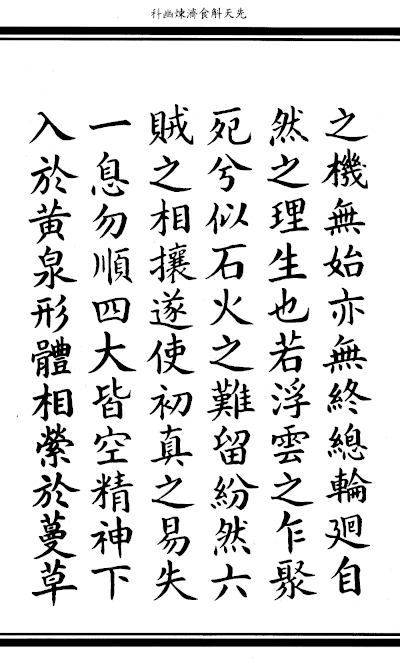 先天斛食濟煉幽科
之機無始亦無終總輪迴自
然之理生也若浮雲之乍聚
死兮似石火之難留紛然六
賊之相攘遂使初真之易失
一息勿順四大皆空精神下
入於黃泉形體相縈於蔓草